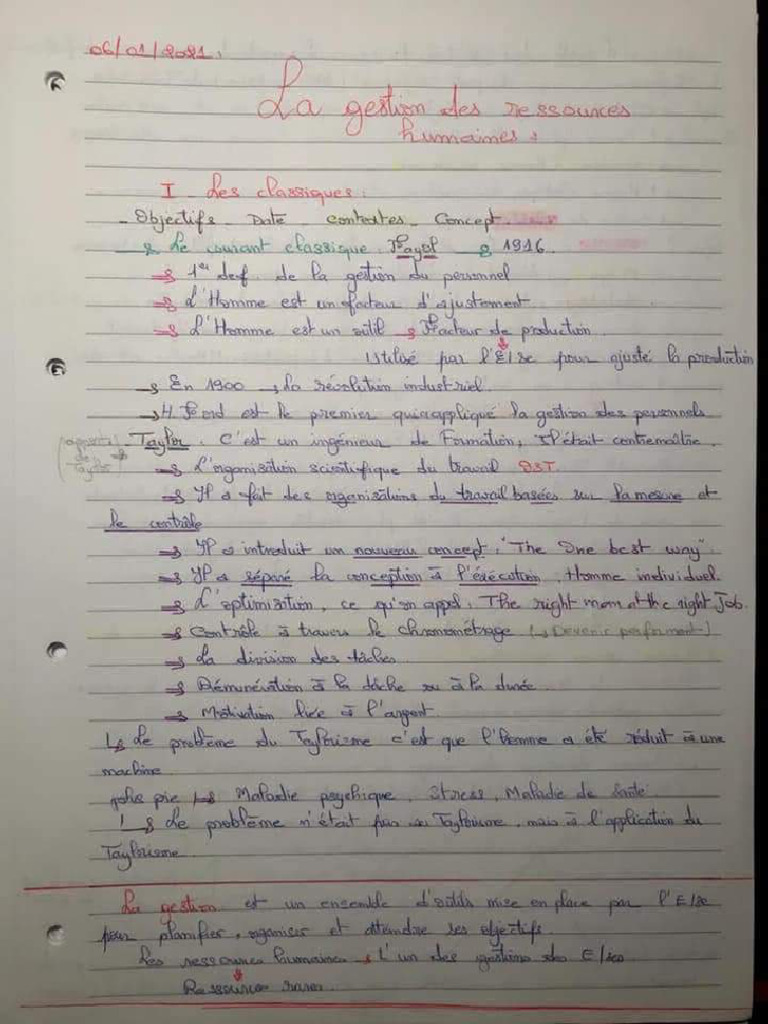 06/01/2021.
La gestion des ressources
humaines.
I - Les classiques.
- Objectifs - Date - contextes - Concept
→ Le courant classique. Fayol → 1916
→ 1er def. de la gestion du personnel
→ L'Homme est un facteur d'ajustement
→ L'Homme est un outil → Facteur de production
utilisé par l'E/se pour ajusté la production
→ En 1900 → La révolution industriel.
→ H. Ford est le premier qui a appliqué la gestion des personnels
- Taylor. C'est un ingénieur de Formation, Il était contremaître.
→ L'organisation scientifique du travail OST.
→ Il a fait des organisations du travail basées sur la mesure et
le contrôle
→ Il a introduit un nouveau concept: "The One best way".
→ Il a séparé la conception à l'éxécution, Homme individuel.
→ L'optimisation, ce qu'on appel: The right man at the right Job.
→ Contrôle à travers le chronométrage (→ Devenir performant)
→ La division des tâches
→ Rémunération à la tâche ou à la durée
→ Motivation liée à l'argent.
↳ Le problème du Taylorisme c'est que l'homme a été réduit à une
machine
↳ Maladie psychique. Stress. Maladie de santé
↳ Le problème n'était pas au Taylorisme, mais à l'application du
Taylorisme
La gestion est un ensemble d'outils mise en place par l'E/se
pour planifier, organiser et attendre ses objectifs.
Les ressources humaines → L'un des gestions des E/ses
Ressources rares